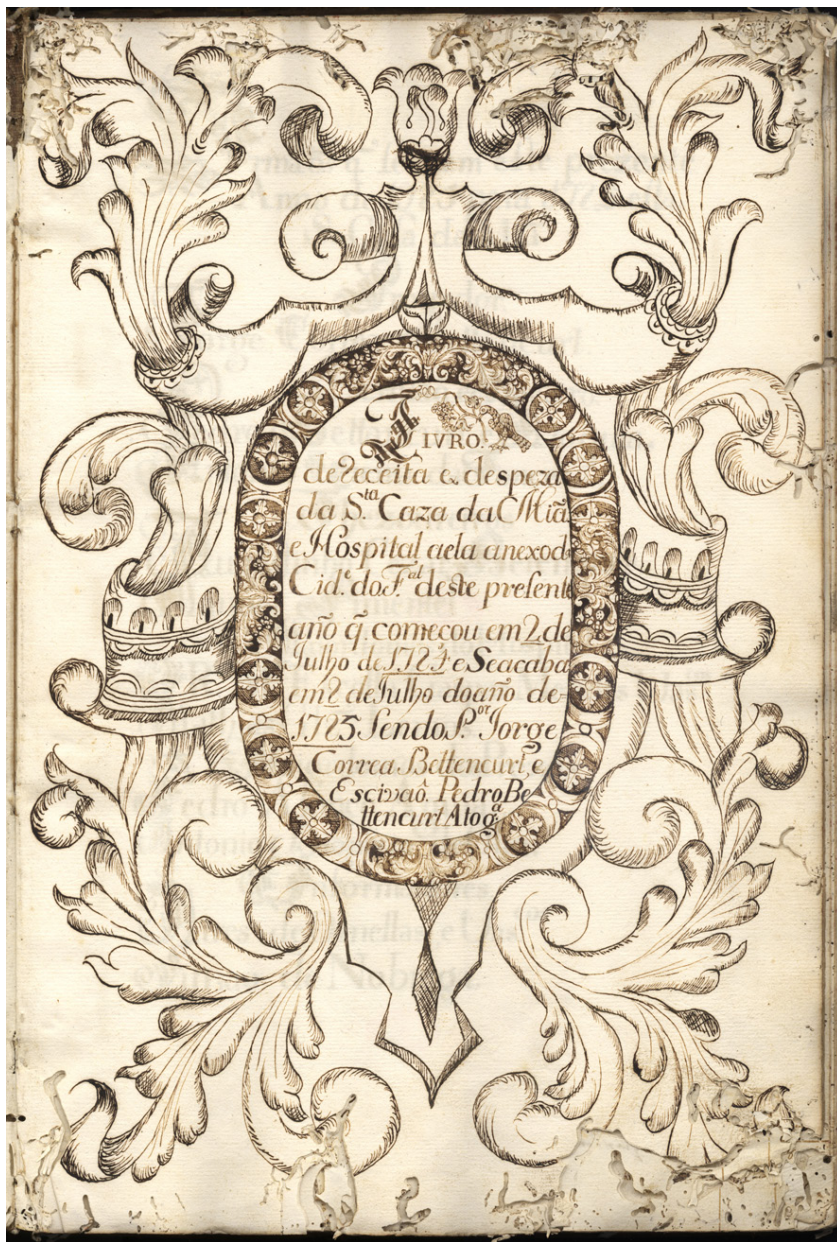 LIVRO
de Receita e despeza
da S.ta Caza da Miã
e Hospital aela anexo d
Cid.e do F.al deste presente
año q̃. comecou em 2 de
Julho de 1724 e Seacaba
em 2 de Julho do año de
1725 Sendo P.or Jorge
Correa Bettencurt, e
Escivaõ. Pedro Be
ttencurt Atog.a